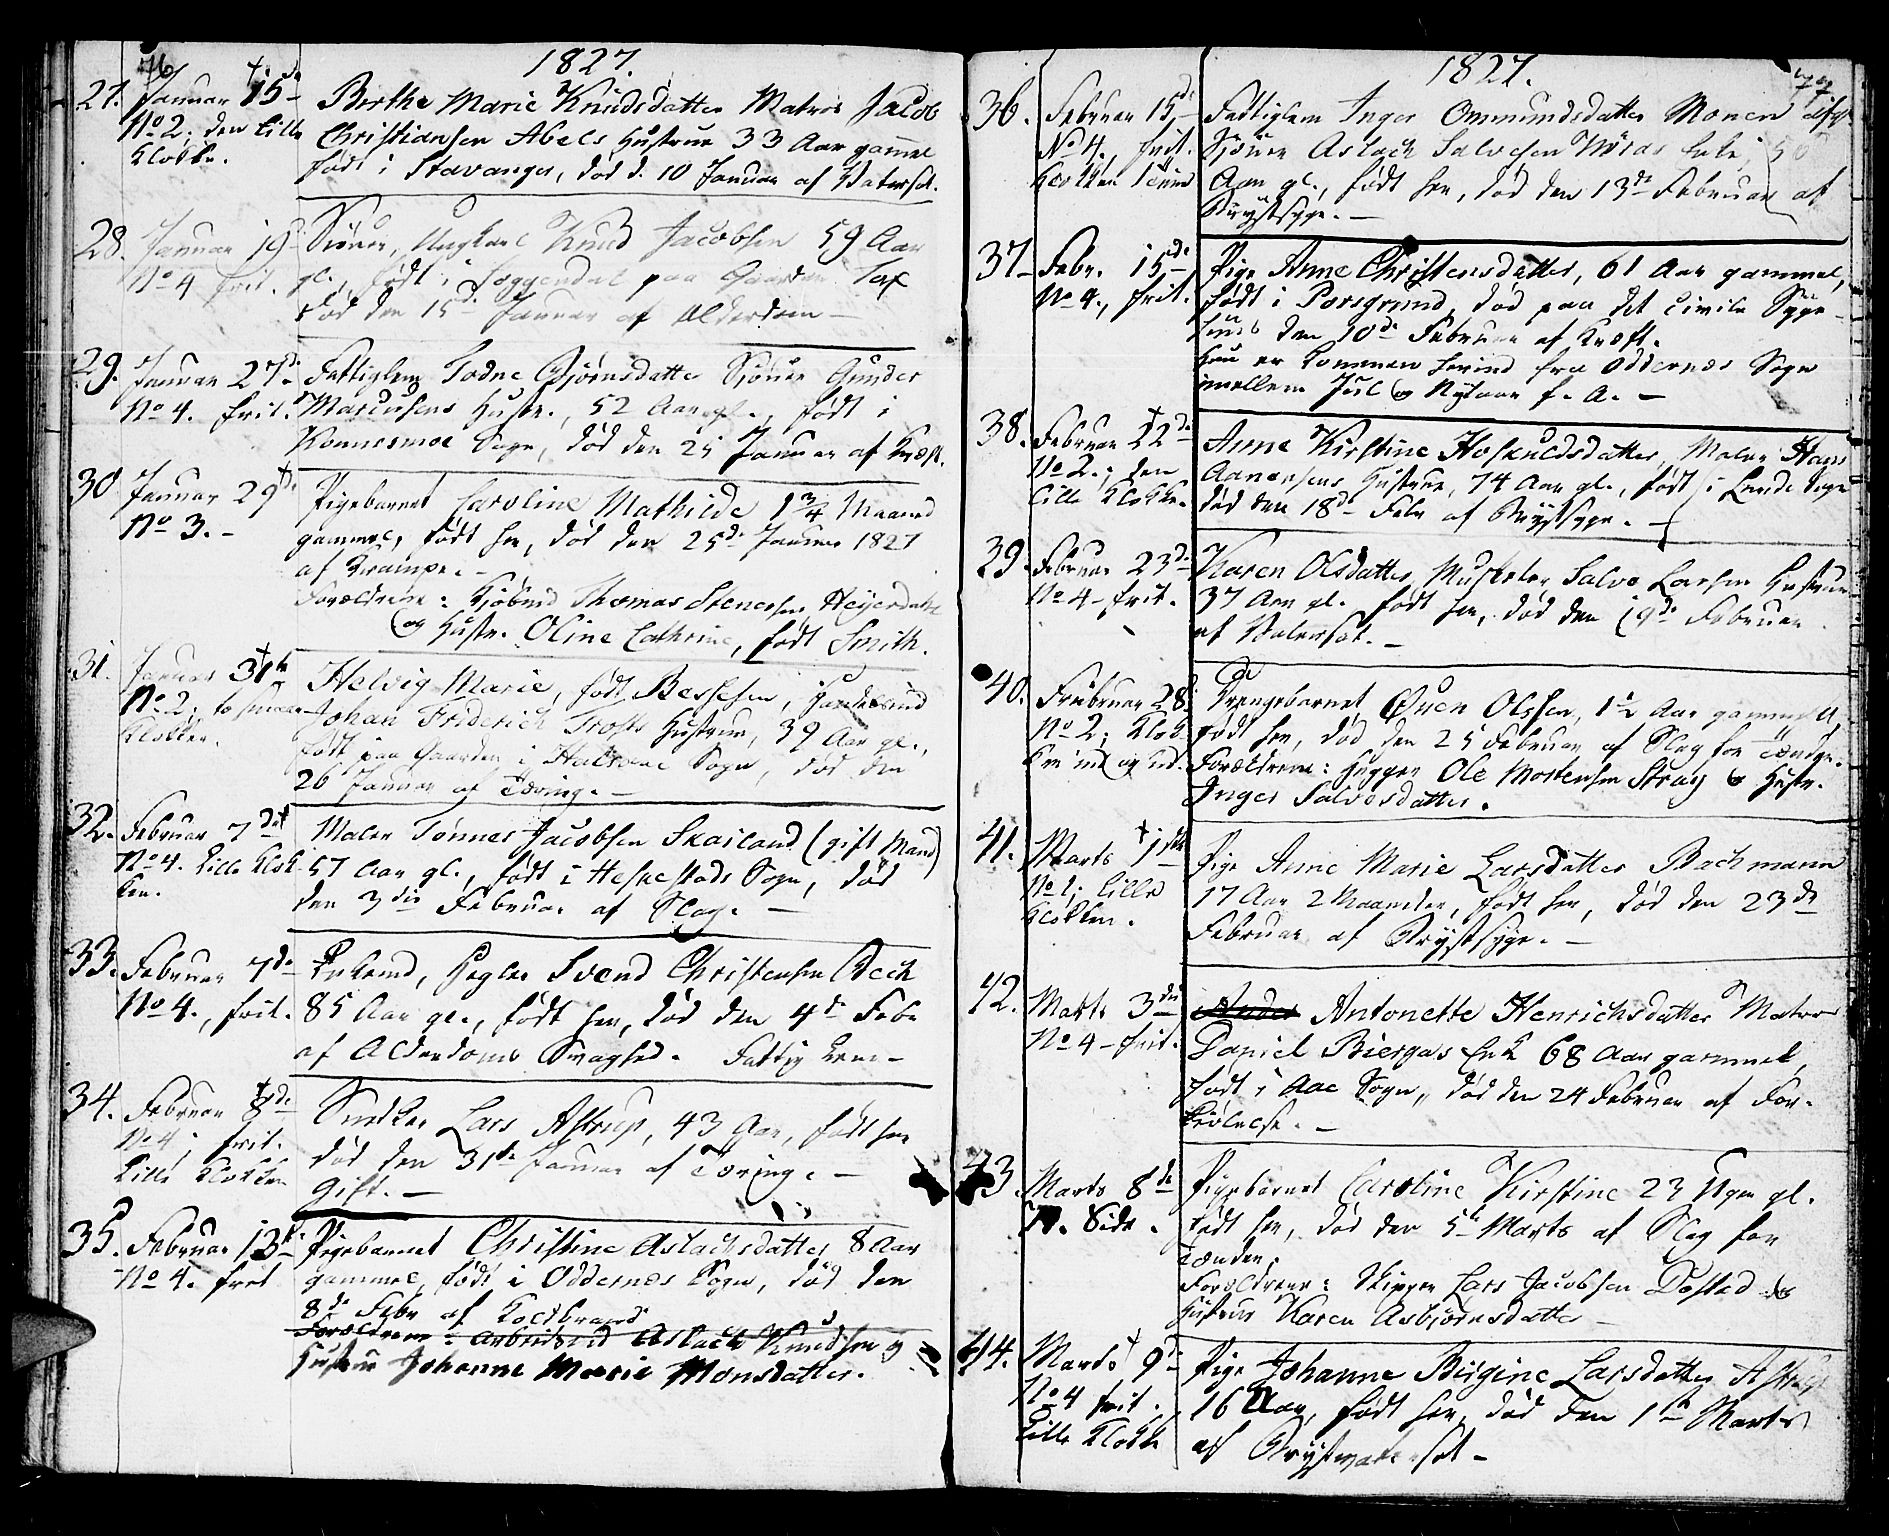 76
1827.
27. Januar 15de Berthe Marie Knudsdatter Matros Jacob
No 2; den lille Christiansen Abels Hustrue 33 Aar gammel
Klokke. født i Stavanger, død d. 10 Januar af Vatersot.
28. Januar 19de Siøner, Ungkarl Knud Jacobsen 59 Aar
No 4 frit. gl., født i Soggendal paa Gaarden
død den 15de Januar af Alderdom
29. Januar 27de Fattiglem Todne Bjørnsdatter Sjøner Gunder
No 4. frit. Marcussens Hustr., 52 Aar gl., født i
Konnesmoe Sogn, død den 25 Januar af Kræft.
30 Januar 29de Pigebarnet Caroline Mathilde 1 3/4 Maaned
No 3. gammel, født her, død den 25de Januar 1827
af Krampe.
Forældrene: Kjøbmd Thomas Stenersen Heyerdahl
og Hustr. Oline Cathrine, født Smith.
31. Januar 31te Helvig Marie, født Bessesen,
No 2; to smaa Johan Friderich Trosts Hustrue, 39 Aar gl.,
Klokker. født paa Gaarden i Sogn, død den
26 Januar af Tæring.
32. Februar 7de Maler Tønnes Jacobsen Skailand (gift Mand)
No 4. Lille Klok- 57 Aar gl., født i Heskestads Sogn, død
ken. den 3die Februar af Slag.
33. Februar 7de Enkemd, Svend Christensen Beck
No 4., frit. 85 Aar gl., født her, død den 4de Febr
af Alderdoms Svaghed. Fattig Lem
34. Februar 8de Snedker Lars Astrup, 43 Aar, født her
No 4; frit. død den 31te Januar af Tæring.
Lille Klokken Gift.
35. Februar 13de Pigebarnet Christine Aslachsdatter 8 Aar
No 4. frit gammel, født i Oddernes Sogn, død den
8de Febr af Koldbrand
Forældrene: Arbeidsmd Aslach Knudsen og
Hustrue Johanne Marie Monsdatter.
77
1827.
36. Februar 15de Fattiglem Inger Ommundsdatter Monen
No 4., frit. Sjøner Aslach Salvesen Enke, 50
Klokken Aar gl., født her, død den 13de Februar af
Brystsyge.
37 Febr. 15de Pige Anne Christensdatter, 61 Aar gammel,
No 4., frit. født i Porsgrund, død paa det civile Syge-
huus den 10de Februar af Kræft.
Hun er kommen herind fra Oddernes Sogn
imellem Juul og Nytaar f. A.
38. Februar 22de Anne Kirstine Hoskuldsdatter, Maler Hans
No 2.; den Aanensens Hustrue, 74 Aar gl., født i Lunde Sogn
lille Klokke. død den 18de Febr af Brystsyge.
39. Februar 23de Karen Olsdatter, Salve Larsen Hustrue
No 4 frit. 37 Aar gl. født her, død den 19de Februar
af Vatersot.
40. Februar 28 Drengebarnet Øven Olssen, 1½ Aar gammelt,
No 2; Klok- født her, død den 25 Februar af Slag for Tændr.
ken ind og ud. Forældrene: Hugger Ole Mortensen Stray & Hustr.
Inger Salvesdatter.
41. Marts 1ste Pige Anne Marie Larsdatter Bachmann
No 1; lille 17 Aar 2 Maaneder, født her, død den 23de
Klokken. Februar af Brystsyge.
42. Marts 3die Antonette Henrichsdatter Matros
No 4 frit. Daniel Biergas Enk 68 Aar gammel,
født i Aae Sogn, død den 24 Februar af For-
kiølelse.
43 Marts 8de Pigebarnet Caroline Kirstine 23 Uger gl.
N. Side. født her, død den 5te Marts af Slag for
Tænder.
Forældrene: Skipper Lars Jacobsen Dosted &
Hustrue Karen Asbjørnsdatter
44. Marts 9de Pige Johanne Birgine Larsdatter
No 4 frit. 16 Aar, født her, død den 1ste Marts
Lille Klokke af